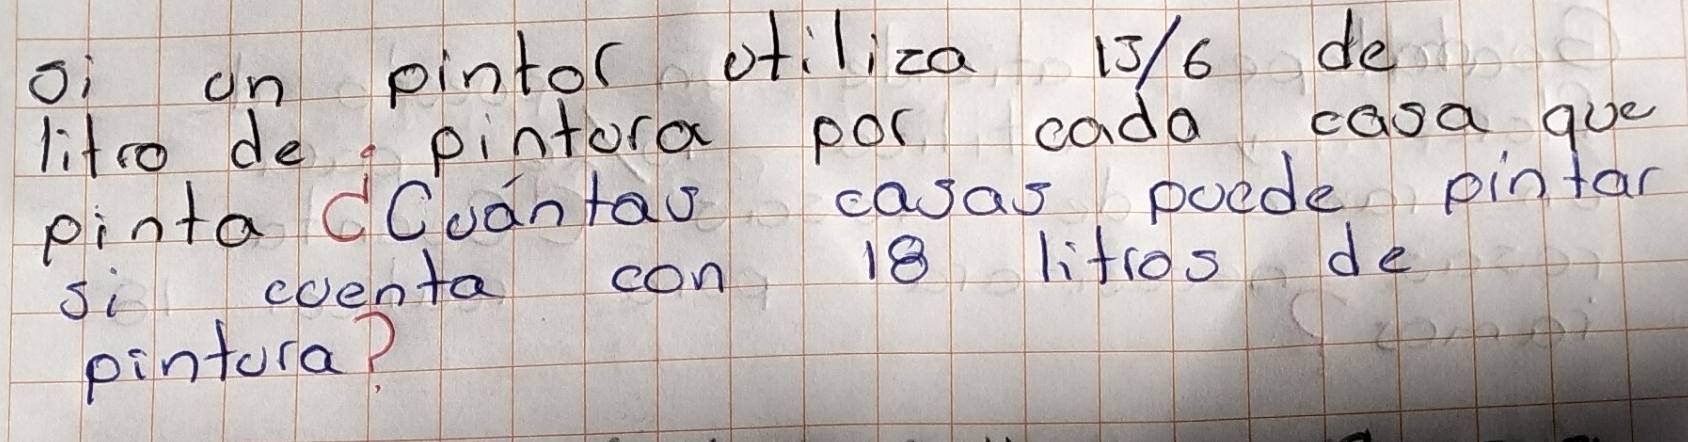 Si un pintor utiliza 15/6 de
litro de pintura por cada casa que
pinta ¿Cuántas casas puede pintar
si cuenta con 18 litros de
pintura?